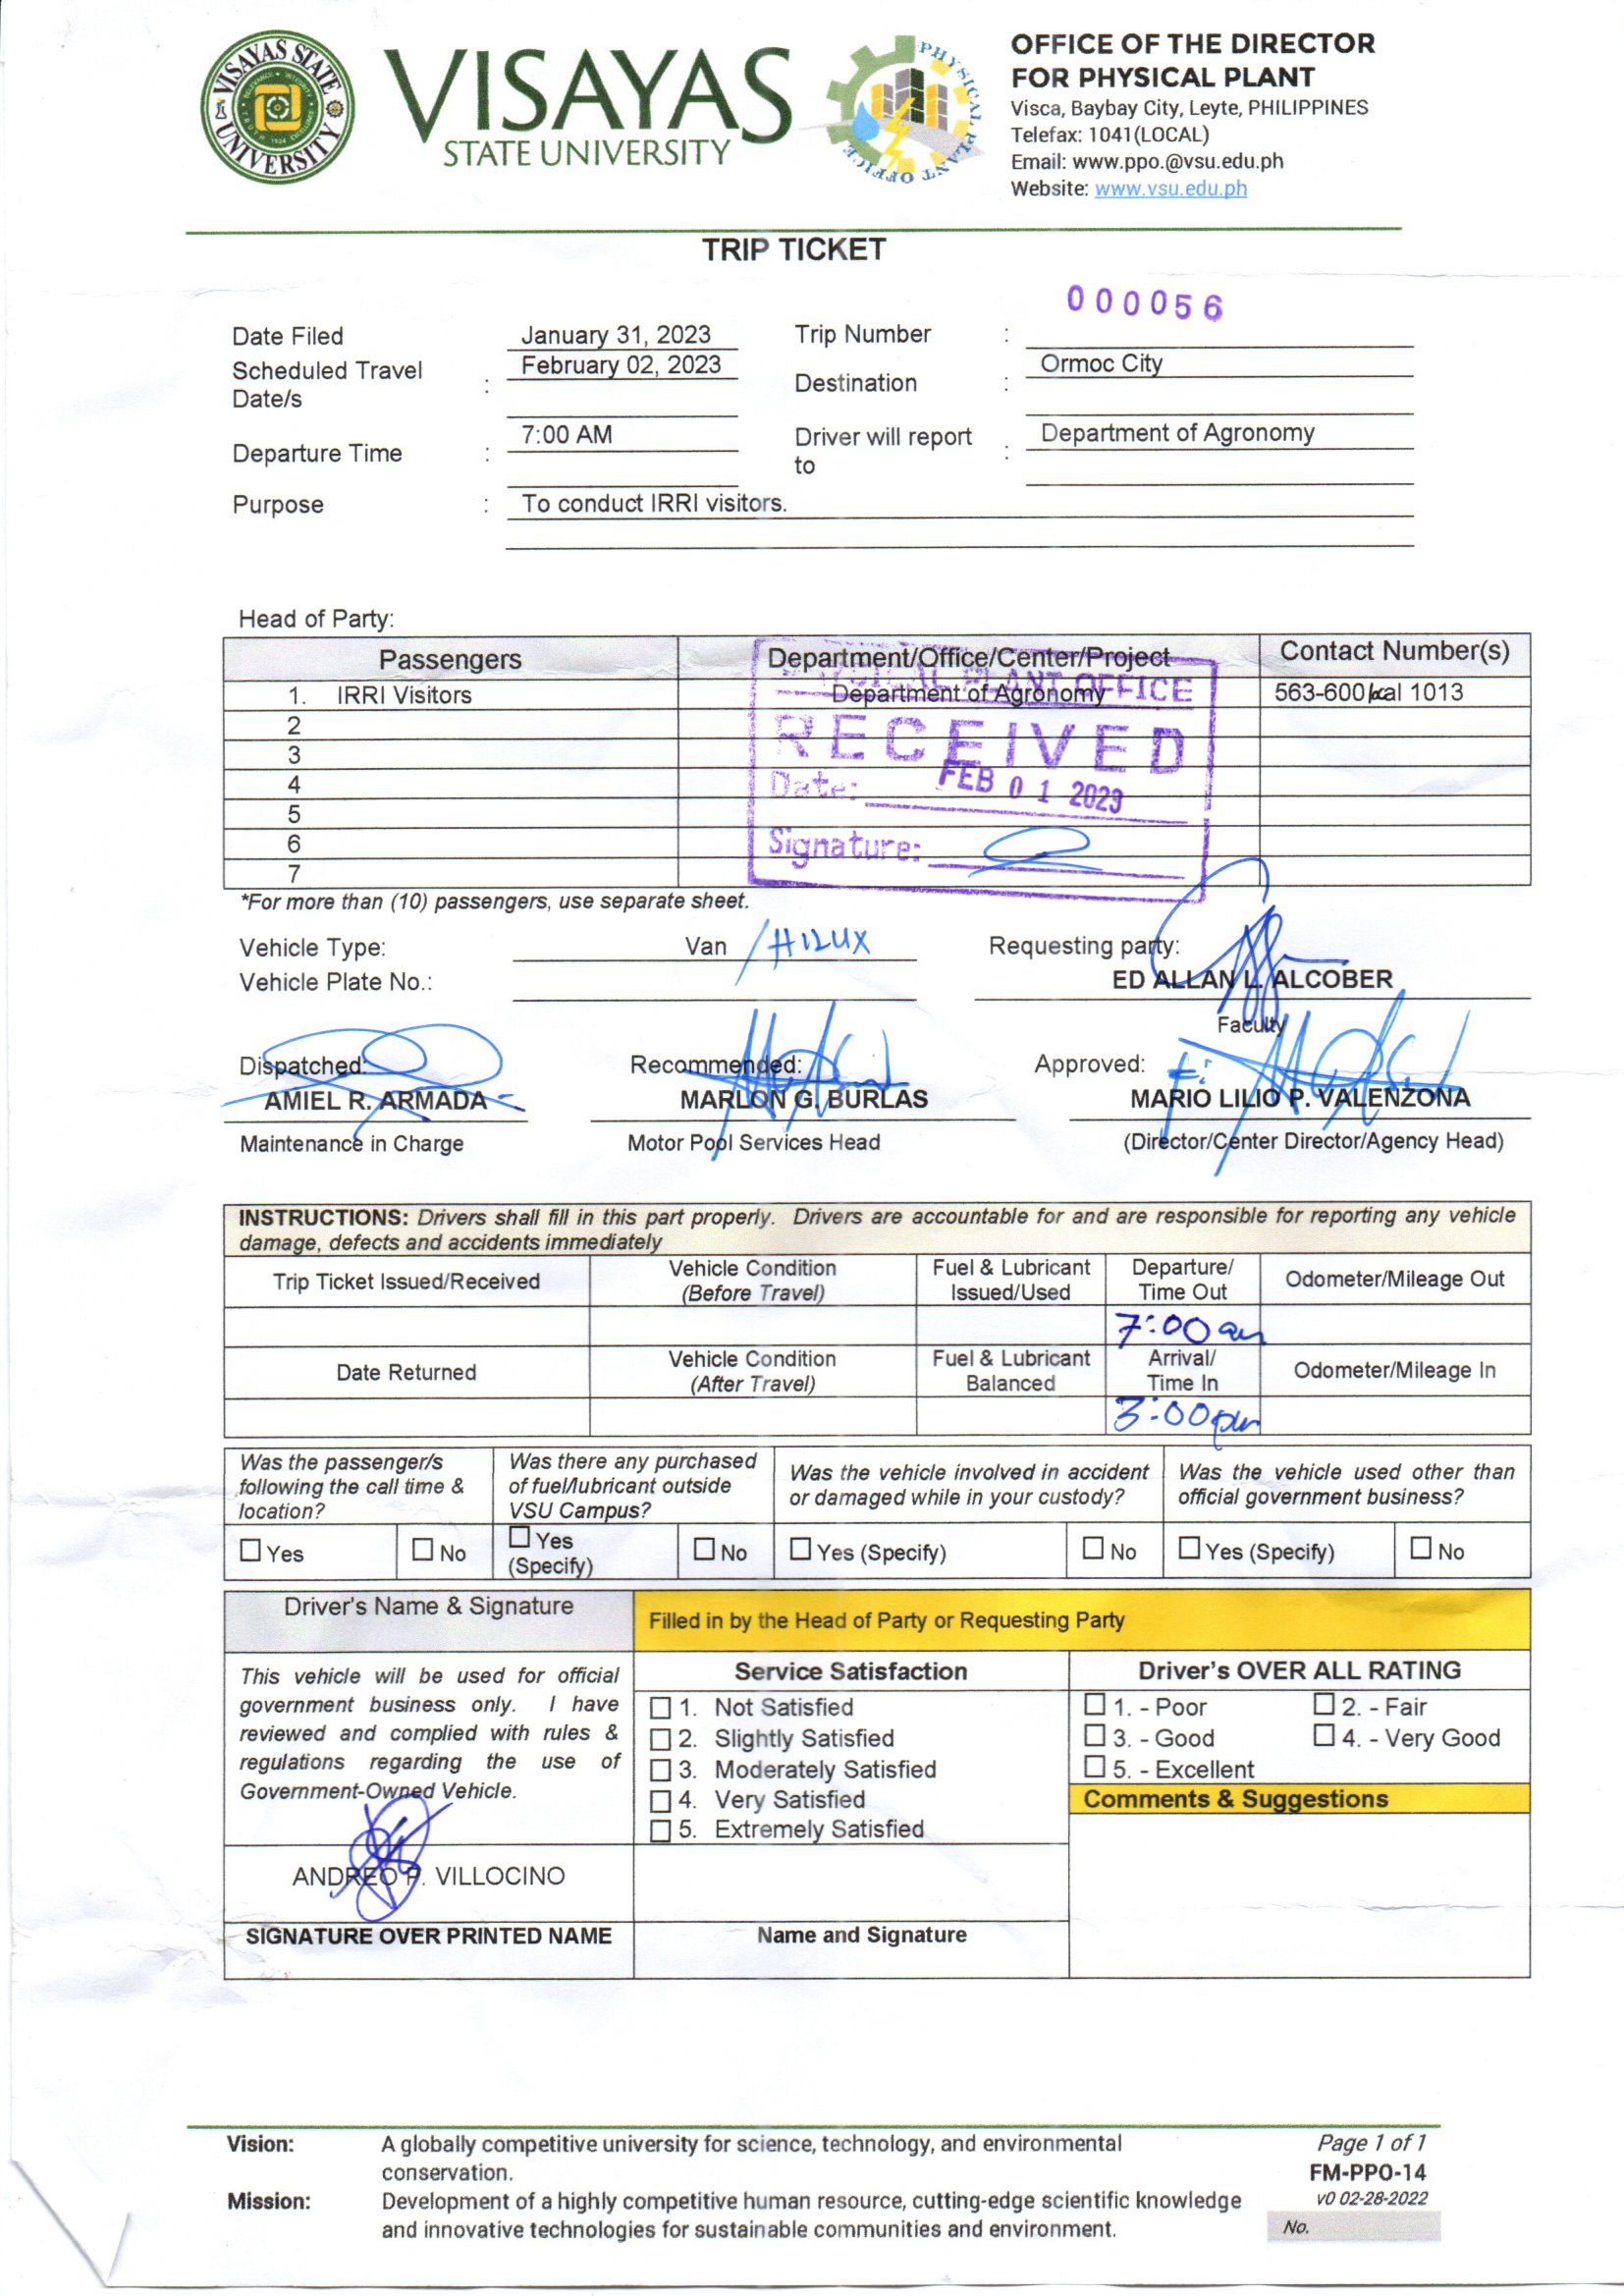 VISAYAS STATE UNIVERSITY
VISAYAS
STATE UNIVERSITY
PHYSICAL PLANT OFFICE
OFFICE OF THE DIRECTOR
FOR PHYSICAL PLANT
Visca, Baybay City, Leyte, PHILIPPINES
Telefax: 1041(LOCAL)
Email: www.ppo.@vsu.edu.ph
Website: www.vsu.edu.ph
TRIP TICKET
000056
Date Filed January 31, 2023 Trip Number :
Scheduled Travel Date/s : February 02, 2023 Destination : Ormoc City
Departure Time : 7:00 AM Driver will report to : Department of Agronomy
Purpose : To conduct IRRI visitors.
Head of Party:
Passengers Department/Office/Center/Project Contact Number(s)
1. IRRI Visitors Department of Agronomy 563-600 local 1013
2
3
4
5
6
7
PHYSICAL PLANT OFFICE
RECEIVED
Date: FEB 01 2023
Signature:
*For more than (10) passengers, use separate sheet.
Vehicle Type: Van / HILUX Requesting party:
Vehicle Plate No.: ED ALLAN L. ALCOBER
Faculty
Dispatched: Recommended: Approved:
AMIEL R. ARMADA MARLON G. BURLAS MARIO LILIO P. VALENZONA
Maintenance in Charge Motor Pool Services Head (Director/Center Director/Agency Head)
INSTRUCTIONS: Drivers shall fill in this part properly. Drivers are accountable for and are responsible for reporting any vehicle
damage, defects and accidents immediately
Trip Ticket Issued/Received Vehicle Condition (Before Travel) Fuel & Lubricant Issued/Used Departure/ Time Out Odometer/Mileage Out
7:00 am
Date Returned Vehicle Condition (After Travel) Fuel & Lubricant Balanced Arrival/ Time In Odometer/Mileage In
3:00 pm
Was the passenger/s following the call time & location? Was there any purchased of fuel/lubricant outside VSU Campus? Was the vehicle involved in accident or damaged while in your custody? Was the vehicle used other than official government business?
Yes No Yes (Specify) No Yes (Specify) No Yes (Specify) No
Driver's Name & Signature Filled in by the Head of Party or Requesting Party
This vehicle will be used for official
government business only. I have
reviewed and complied with rules &
regulations regarding the use of
Government-Owned Vehicle.
ANDREO P. VILLOCINO
SIGNATURE OVER PRINTED NAME
Service Satisfaction
1. Not Satisfied
2. Slightly Satisfied
3. Moderately Satisfied
4. Very Satisfied
5. Extremely Satisfied
Name and Signature
Driver's OVER ALL RATING
1. - Poor 2. - Fair
3. - Good 4. - Very Good
5. - Excellent
Comments & Suggestions
Vision: A globally competitive university for science, technology, and environmental
conservation.
Mission: Development of a highly competitive human resource, cutting-edge scientific knowledge
and innovative technologies for sustainable communities and environment.
Page 1 of 1
FM-PPO-14
v0 02-28-2022
No.